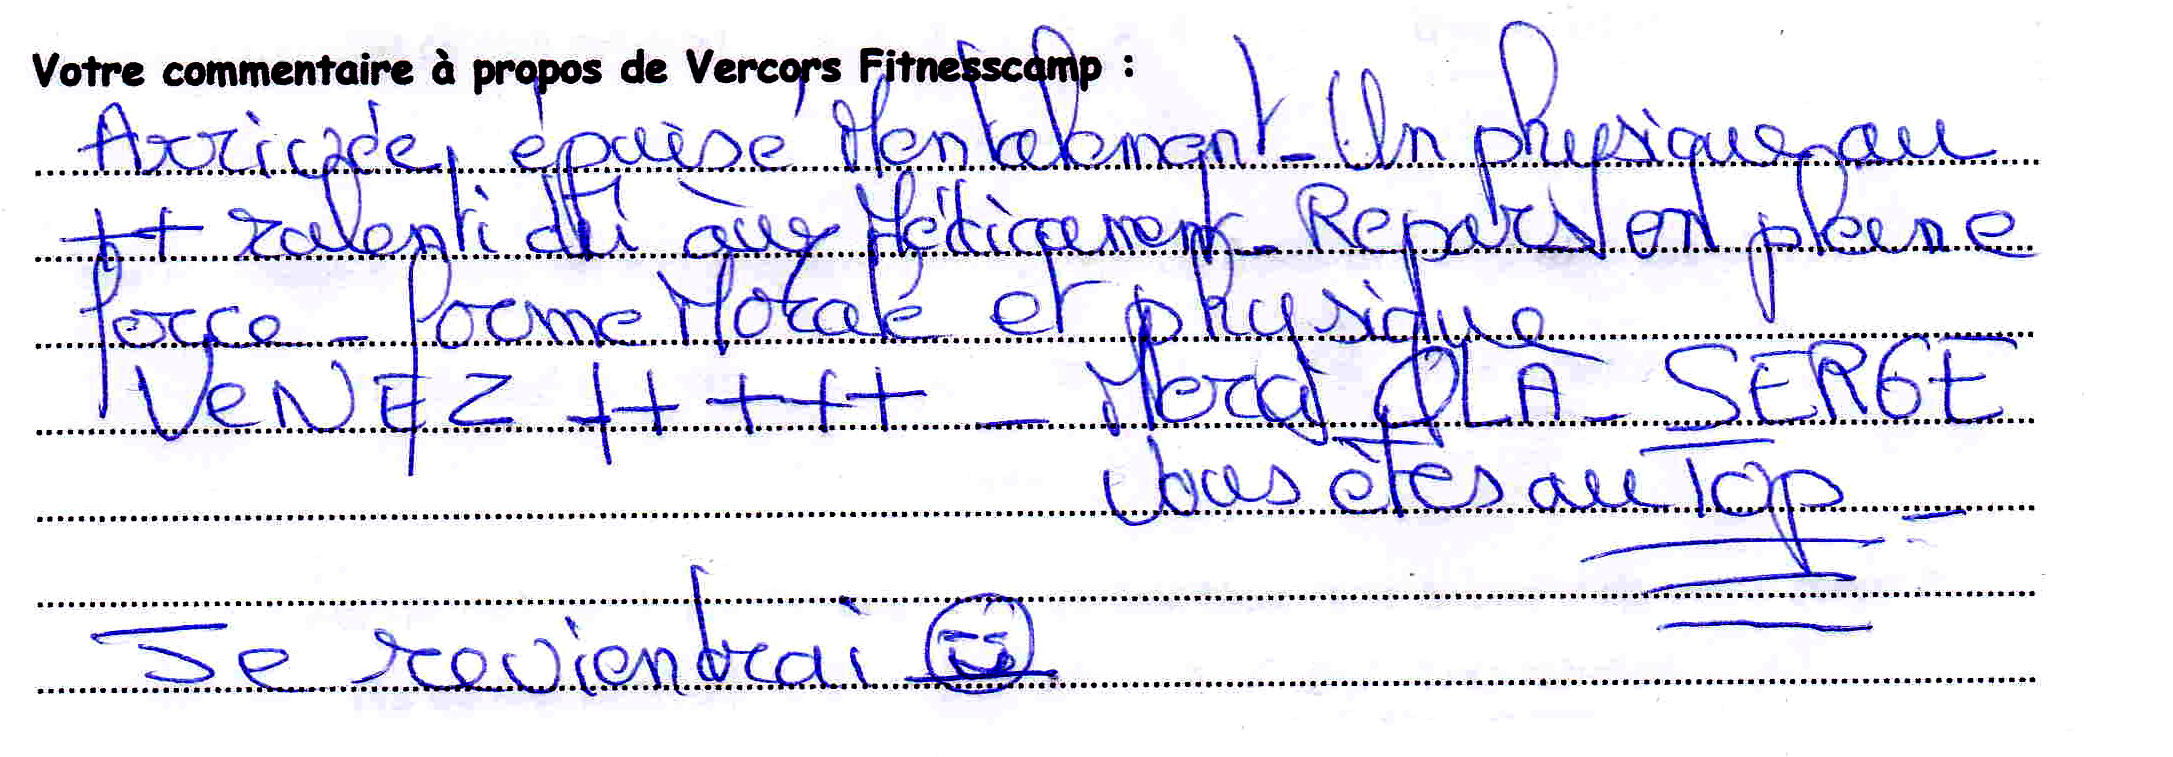 Votre commentaire à propos de Vercors Fitnesscamp :
Arrivée, épuisé Mentalement - Un physique au
++ ralenti dû aux Médicament - Repars en pleine
force - forme Morale et physique
VeNEZ +++++ - Merci OLA - SERGE
Vous êtes au Top -
Je reviendrai